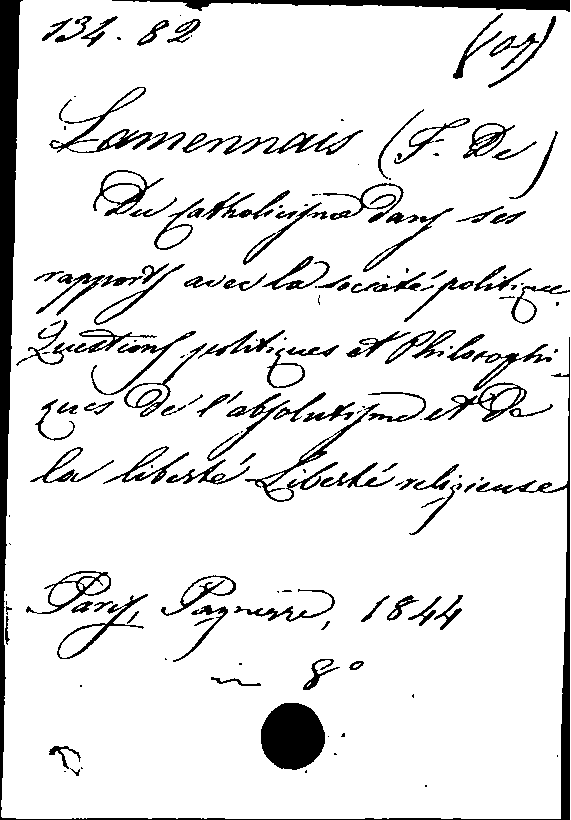 134.82
Lamennais (F. De)
Du Catholicisme dans ses
rapports avec la société politique.
Questions politiques et Philosophi-
ques de l'absolutisme et de
la liberté. Liberté religieuse
Paris, Pagnerre, 1844
in 8°